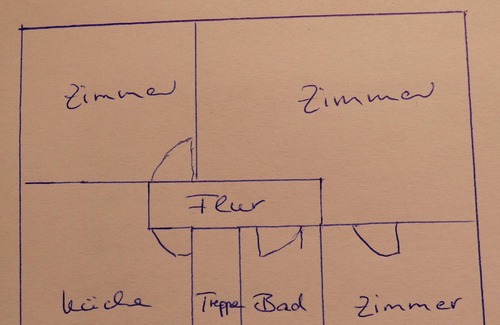 Zimmer Zimmer
Flur
Küche Treppe Bad Zimmer